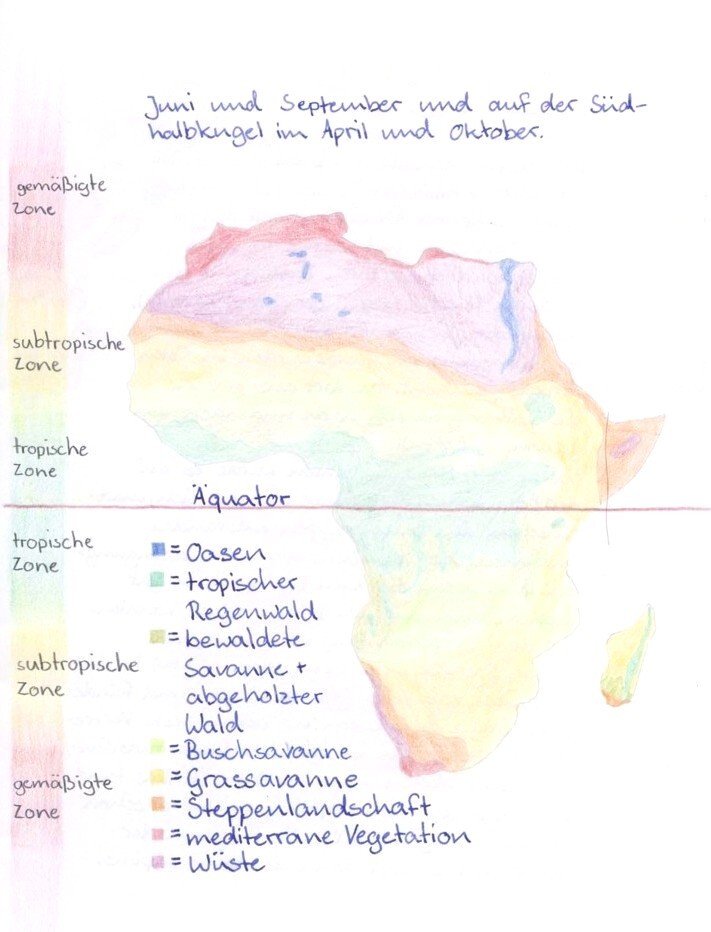 Juni und September und auf der Süd-
halbkugel im April und Oktober.
gemäßigte
Zone
subtropische
Zone
tropische
Zone
Äquator
tropische
Zone
subtropische
Zone
gemäßigte
Zone
= Oasen
= tropischer
Regenwald
= bewaldete
Savanne +
abgeholzter
Wald
= Buschsavanne
= Grassavanne
= Steppenlandschaft
= mediterrane Vegetation
= Wüste